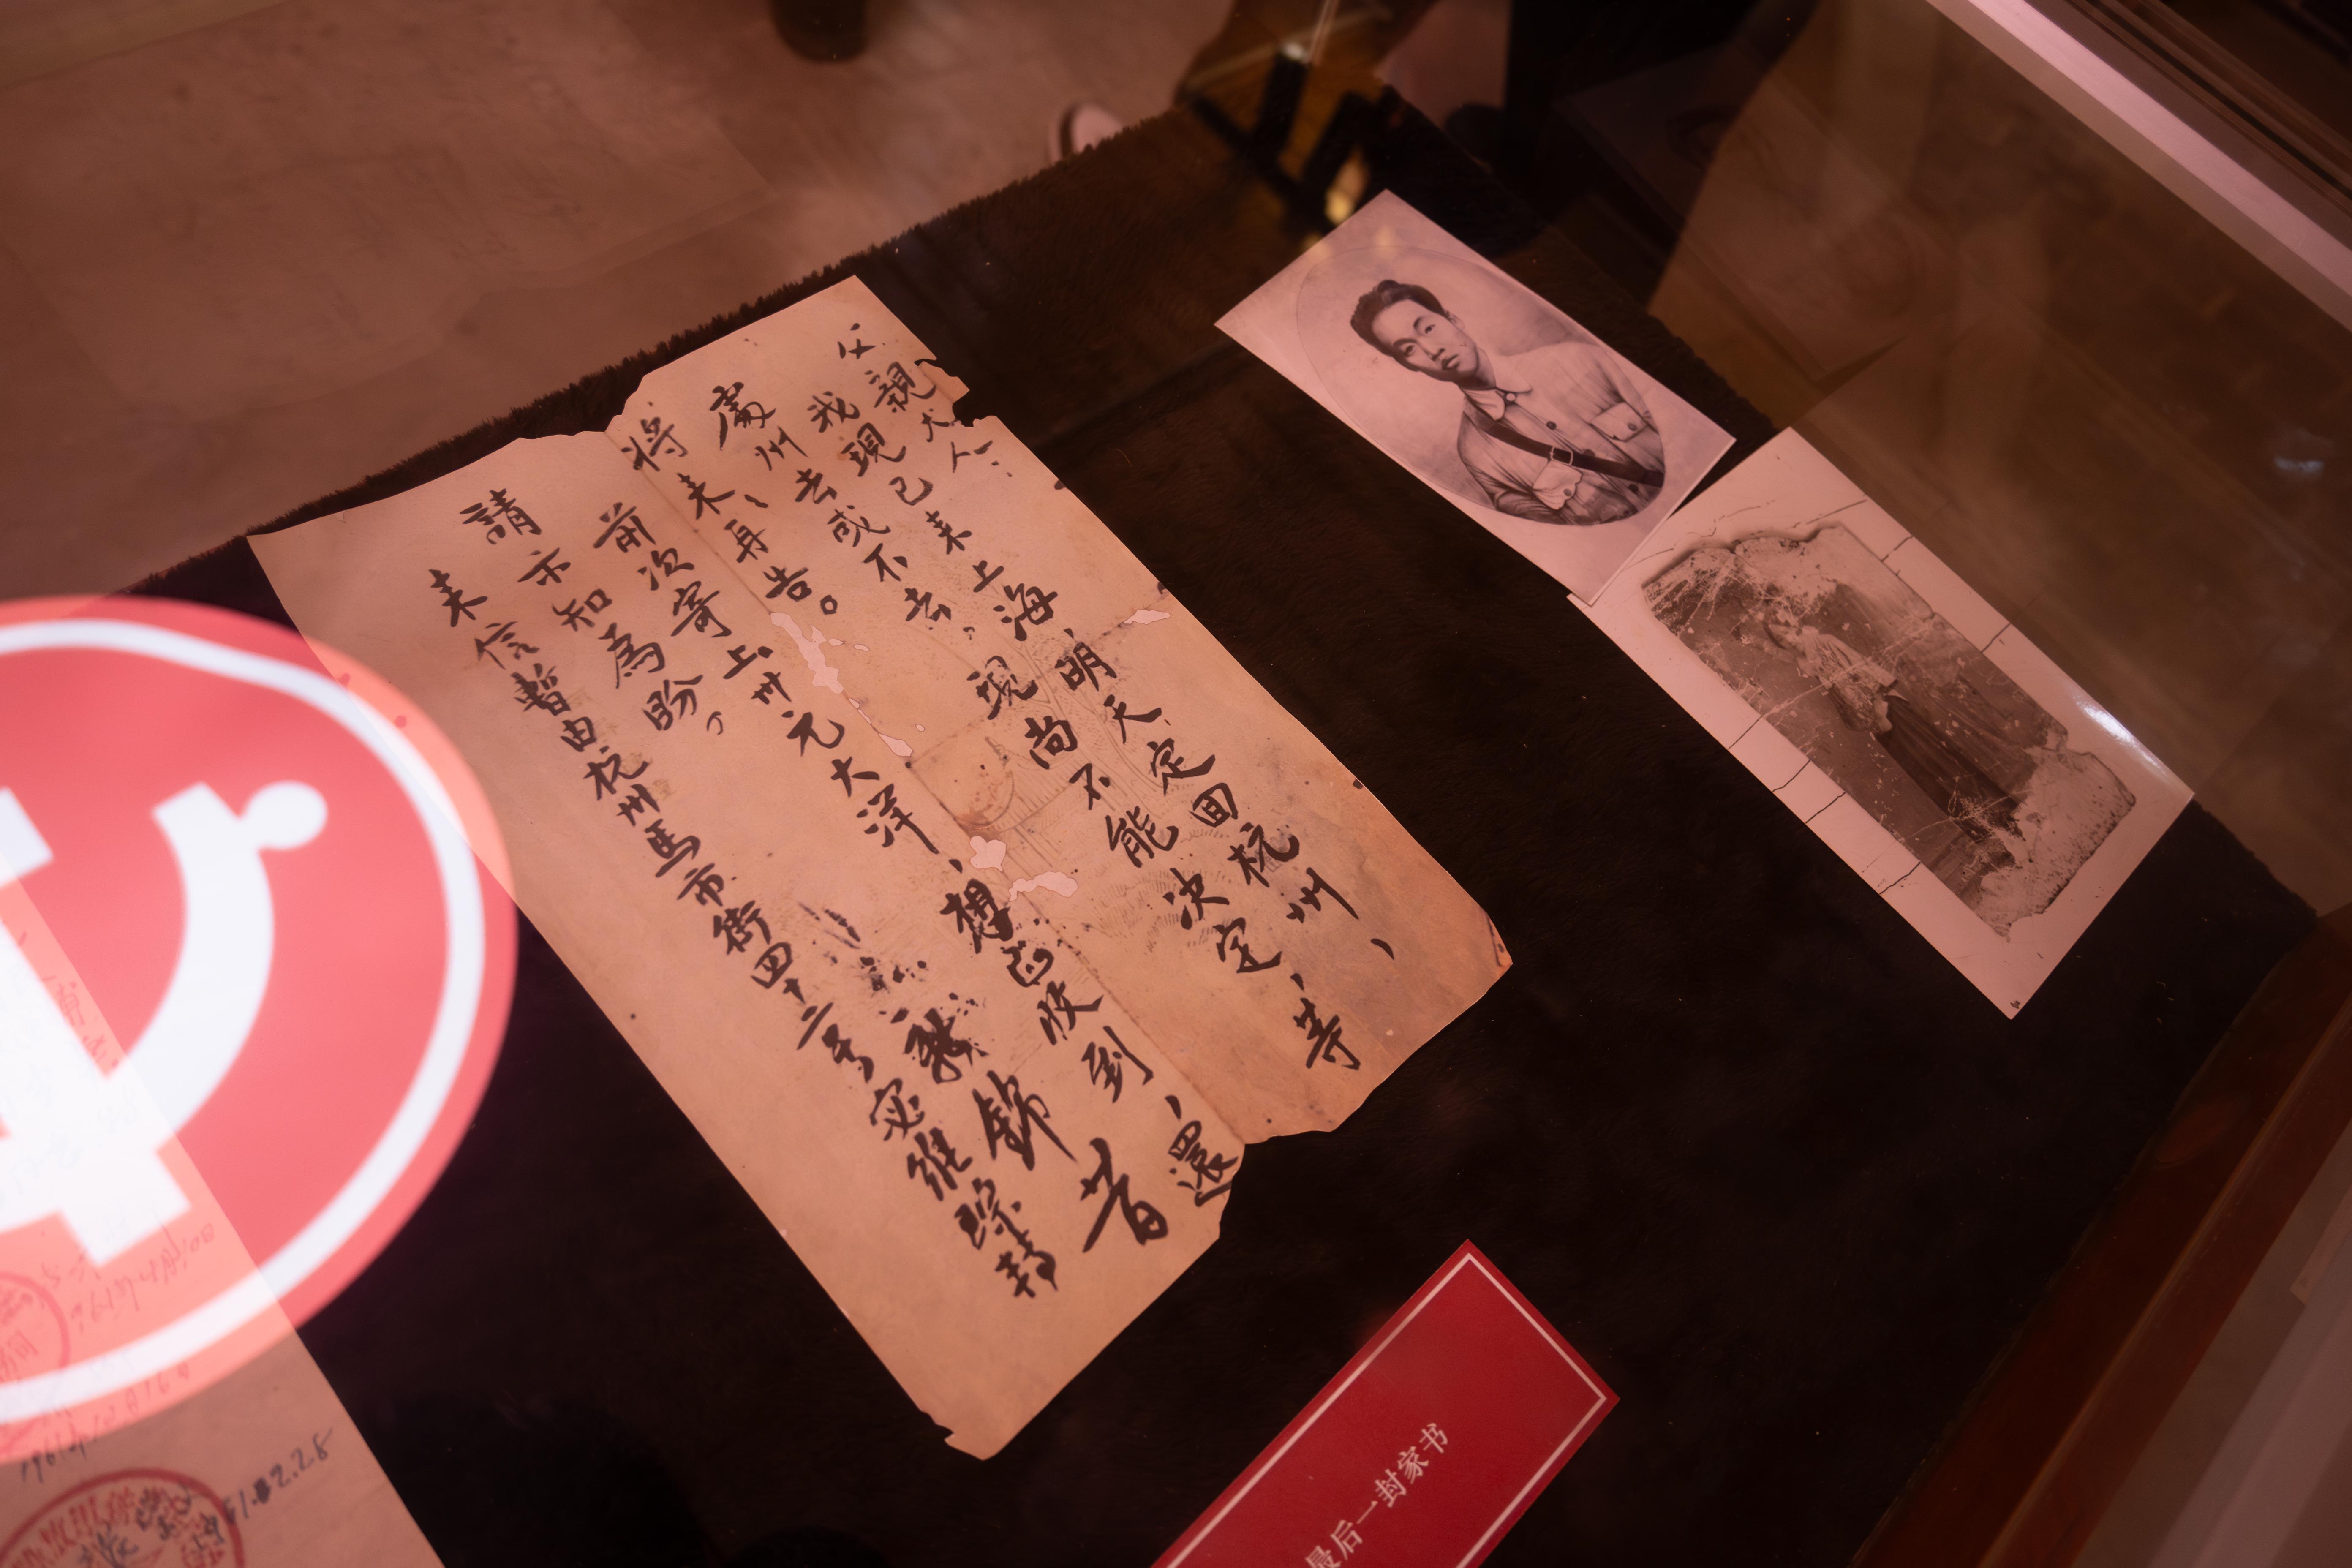 父親大人:
我現已来上海,明天定回杭州、
處州去或不去,現尚不能決定、等
将来、再告。
前次寄上卅元大洋、想必收到、還
請示知為盼,
錦昔
来信暫由杭州馬市街四十二号宓維琮轉
最后一封家书